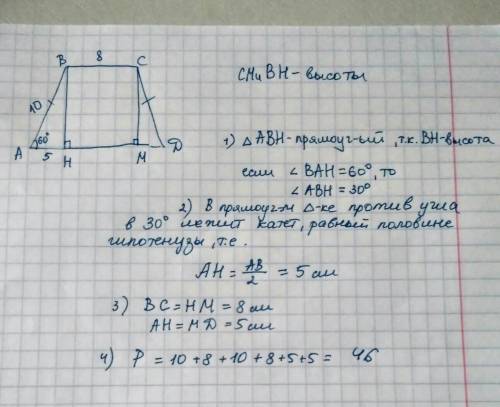 B 8 C
10
60°
A 5 H M D
CM и BH - высоты
1) △ ABH - прямоуг-ый, т.к. BH - высота
если ∠ BAH = 60°, то
∠ ABH = 30°
2) В прямоуг-м △-ке против угла
в 30° лежит катет, равный половине
гипотенузы, т.е.
AH = AB/2 = 5 см
3) BC = HM = 8 см
AH = MD = 5 см
4) P = 10 + 8 + 10 + 8 + 5 + 5 = 46